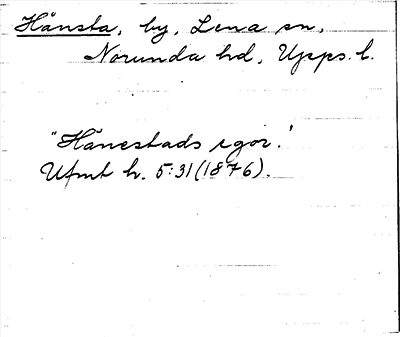 Hånsta, by, Lena sn,
Norunda hd, Upps. l.
"Hånestads egor."
Ufmt h. 5:31 (1876).